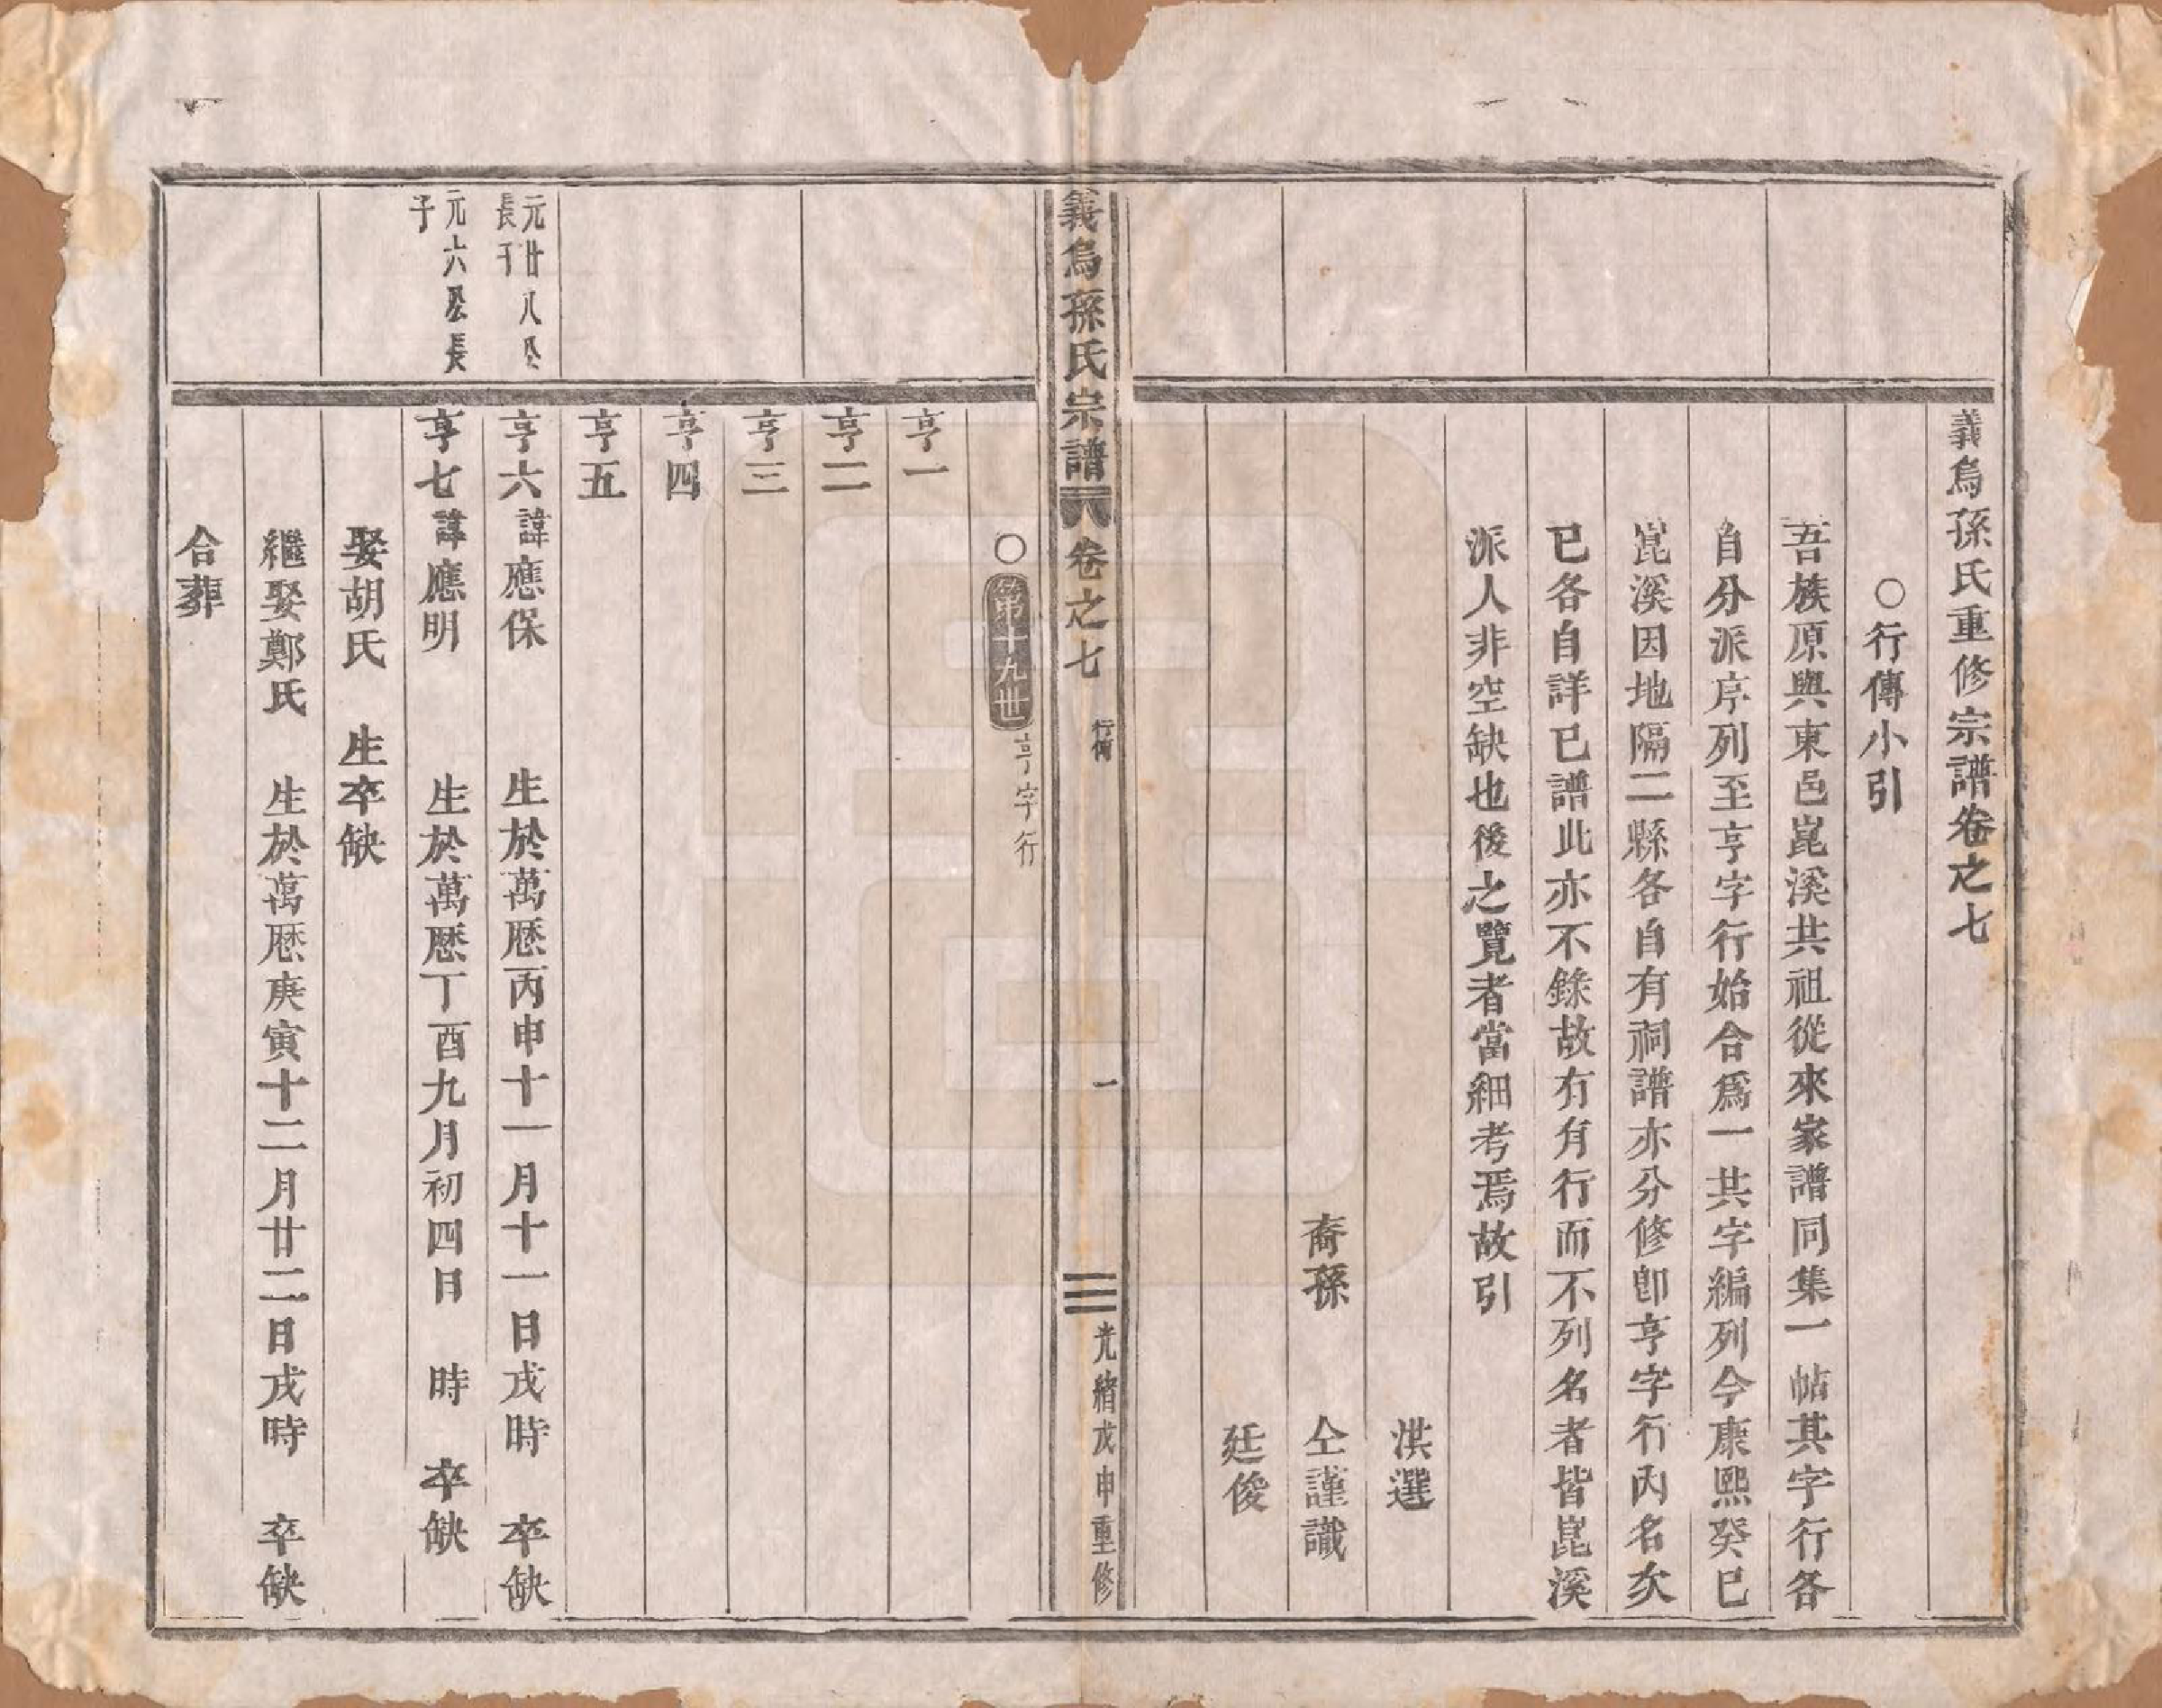 義烏孫氏重修宗譜卷之七
○行傳小引
吾族原與東邑崑溪共祖從來家譜同集一帖其字行各
自分派序列至亨字行始合爲一共字編列今康熙癸巳
崑溪因地隔二縣各自有祠譜亦分修卽亨字行內名次
已各自詳已譜此亦不錄故有有行而不列名者皆崑溪
派人非空缺也後之覽者當細考焉故引
淇選
裔孫 仝謹識
廷俊
義烏孫氏宗譜 卷之七 行傳 一 光緒戊申重修
○第十九世 亨字行
亨一
亨二
亨三
亨四
亨五
元廿八公長子
亨六 諱應保 生於萬厯丙申十一月十一日戌時 卒缺
元六公長子
亨七 諱應明 生於萬厯丁酉九月初四日 時 卒缺
娶胡氏 生卒缺
繼娶鄭氏 生於萬厯庚寅十二月廿二日戌時 卒缺
合葬